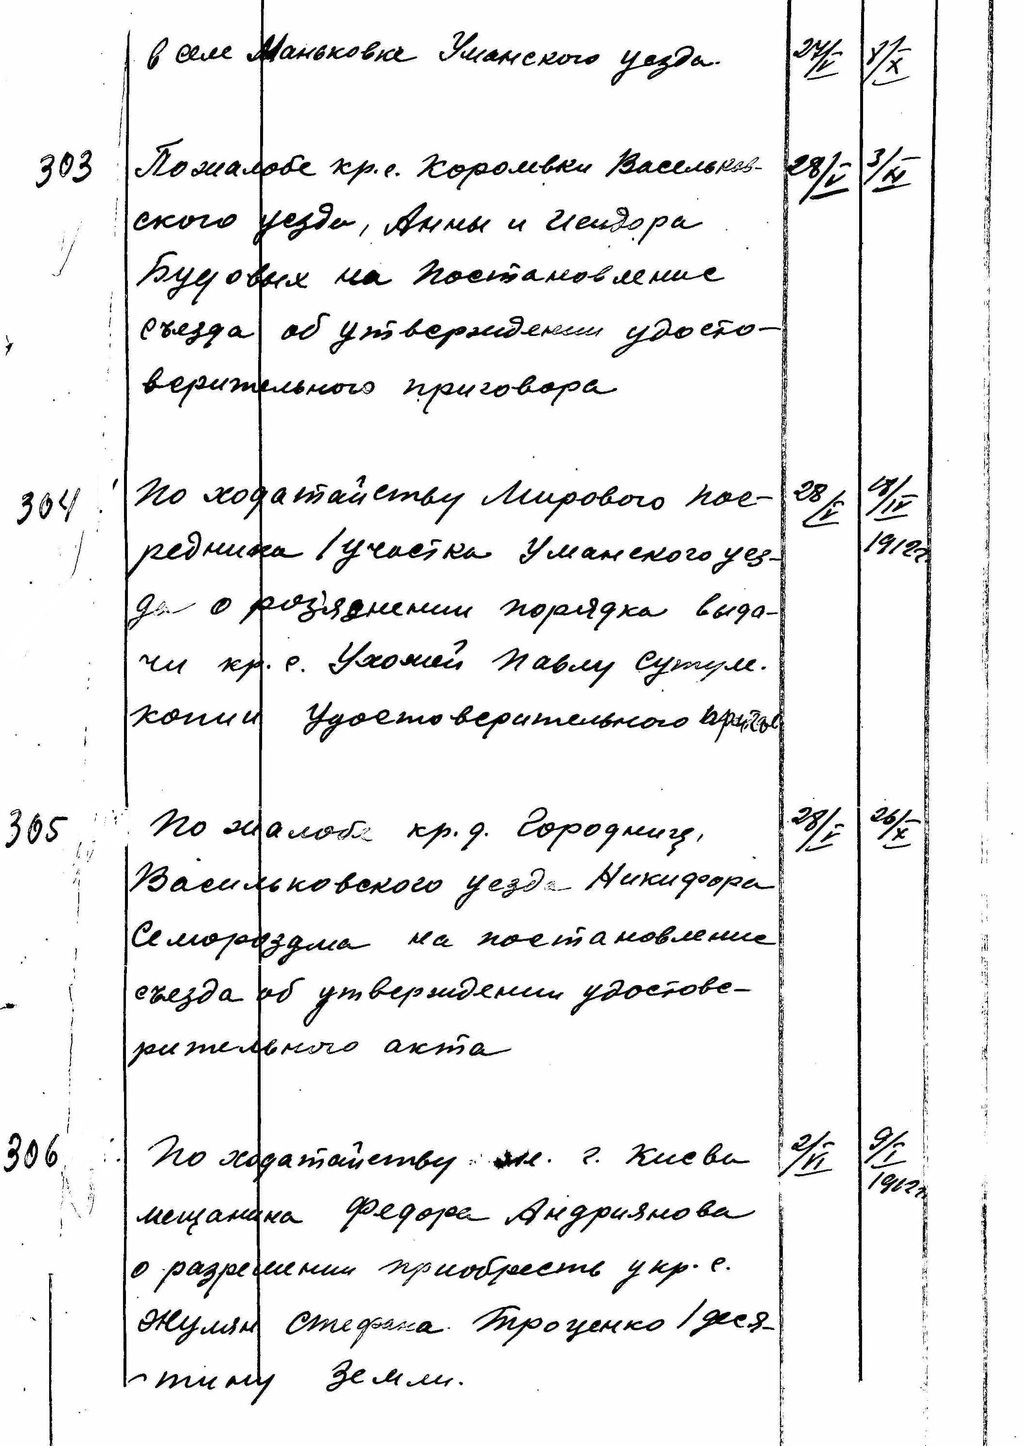 в селе Маньковке Уманского уезда. 27/V 8/X
303 По жалобе кр. с. Королевки Васильков- 28/V 3/XI
ского уезда, Анны и Исидора
на постановление
съезда об утверждении удосто-
верительного приговора
304 По ходатайству Мирового пос- 28/V 18/IV
редника 1 участка Уманского уез- 1912г.
да о роз'яснении порядка выда-
чи кр. с. Ухожей Павлу
копии удостоверительного
305 По жалобе кр. д. Городнищ, 28/V 26/X
Васильковского уезда Никифора
Семороздма на постановление
съезда об утверждении удостове-
рительного акта
306 По ходатайству г. Киева 2/VI 9/I
мещанина Федора Андриянова 1912г.
о разрешении приобресть у кр. с.
Жулян Стефана Троценко 1 деся-
тину земли.